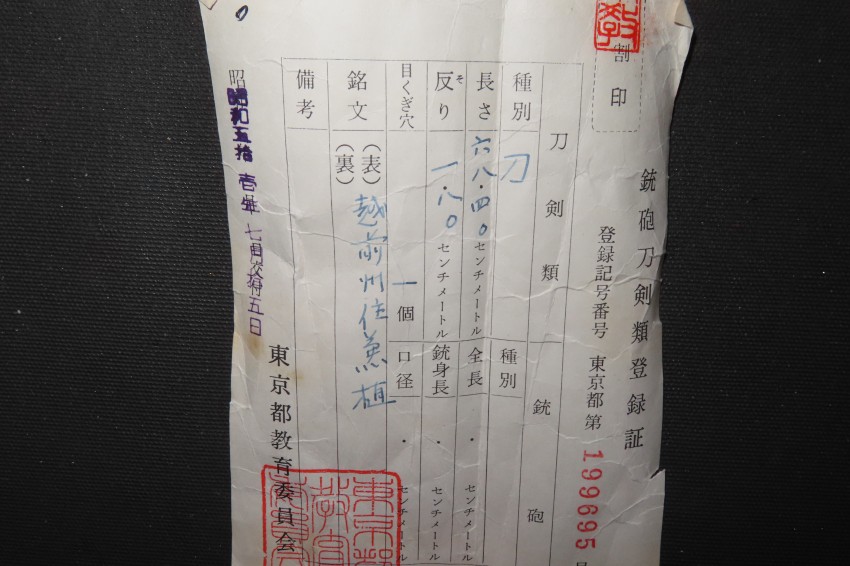 銃砲刀剣類登録証
割印
登録記号番号 東京都第 199695
刀剣類 銃砲
種別 刀 種別
長さ 六八・四〇 センチメートル 全長 ・ センチメートル
反り 一・八〇 センチメートル 銃身長 ・ センチメートル
そ
目くぎ穴 一個 口径 ・ センチメートル
銘文 (表) 越前州住兼植
(裏)
備考
昭和五拾壱年七月拾五日
東京都教育委員会